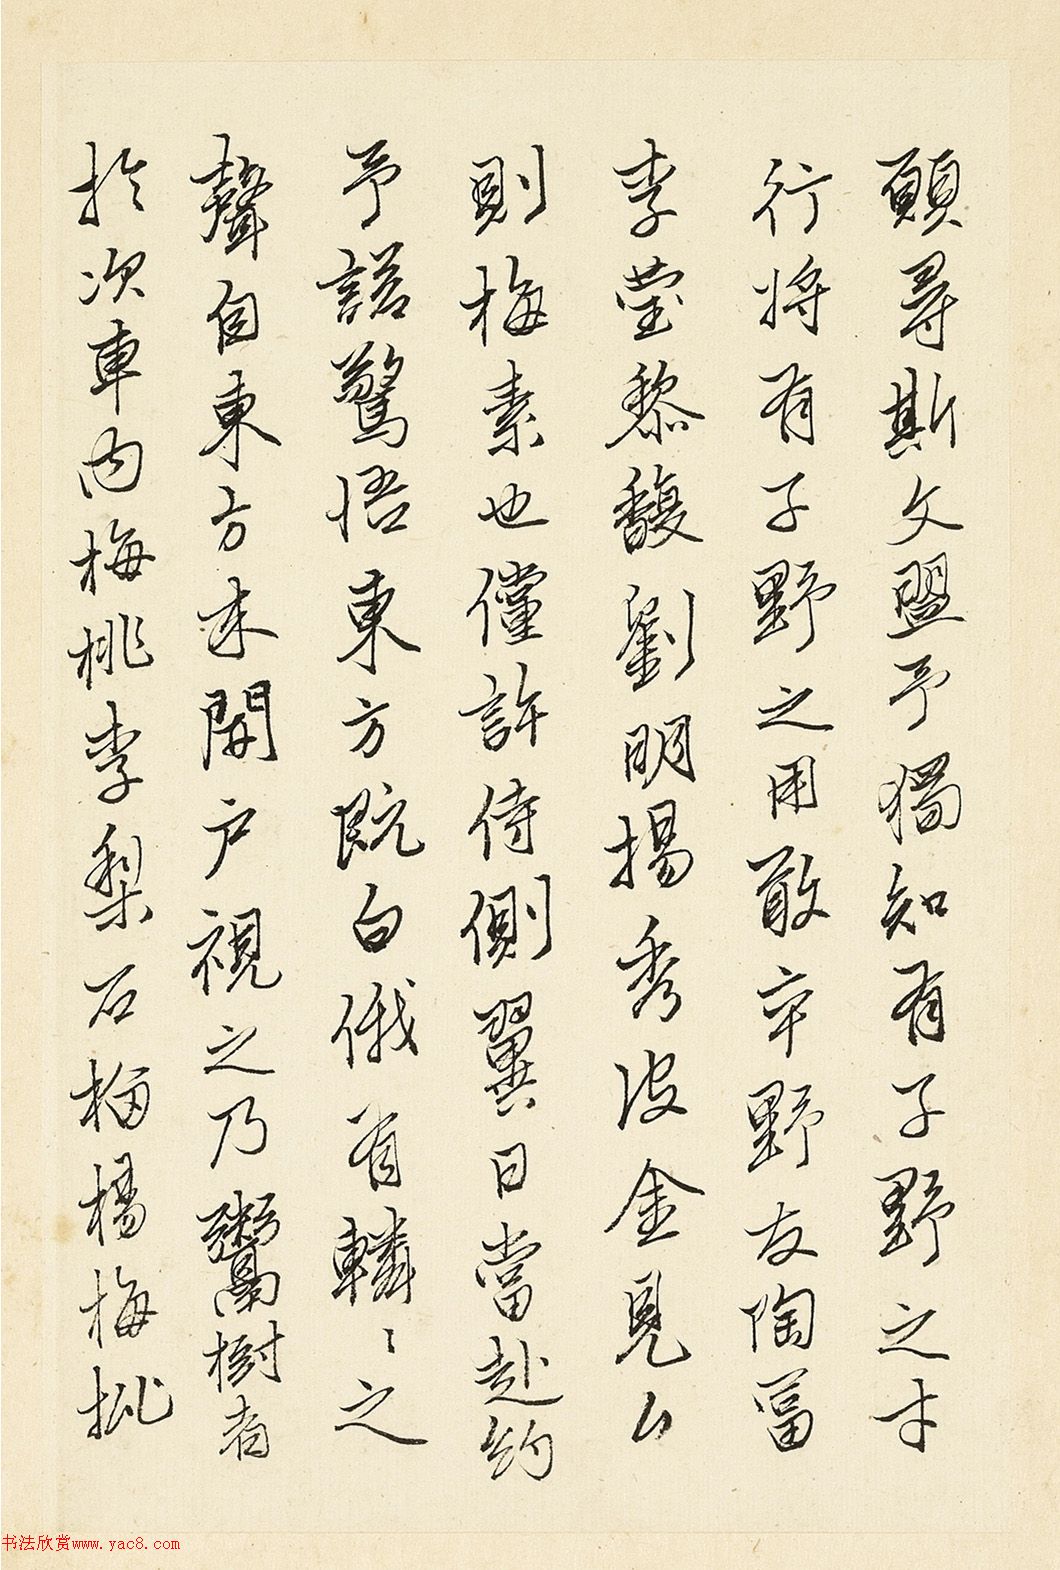 願尋斯文盟予獨知有子野之才
行將有子野之用敢率野友陶富
李瑩黎馥劉明揚秀波金見公
則梅素也儻許侍側翼日當赴約
予諾驚悟東方既白俄有轔々之
聲自東方來開户視之乃鬻樹者
於次車内梅桃李梨石榴楊梅批
书法欣赏www.yac8.com